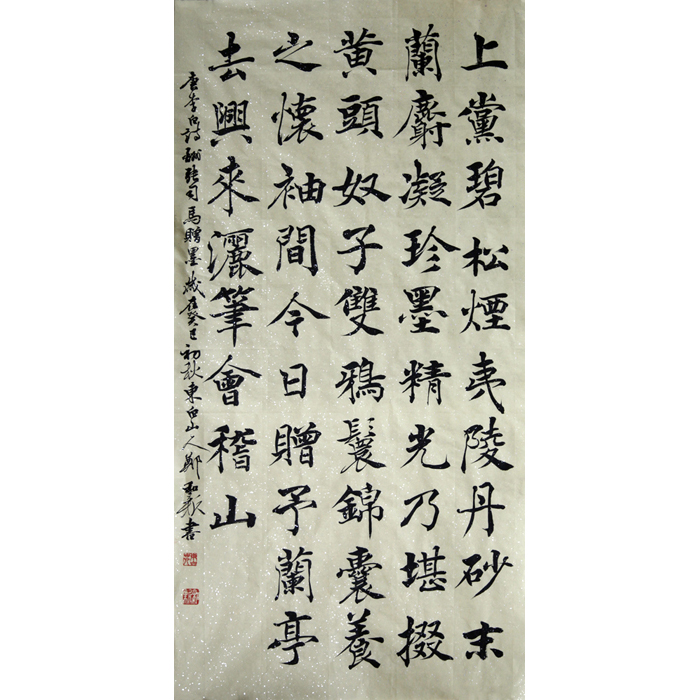 上黨碧松煙夷陵丹砂末
蘭麝凝珍墨精光乃堪掇
黄頭奴子雙鴉鬟錦囊養
之懷袖間今日贈予蘭亭
去興來灑筆會稽山
唐李白詩酬張司馬贈墨歲在癸巳初秋東白山人鄭書